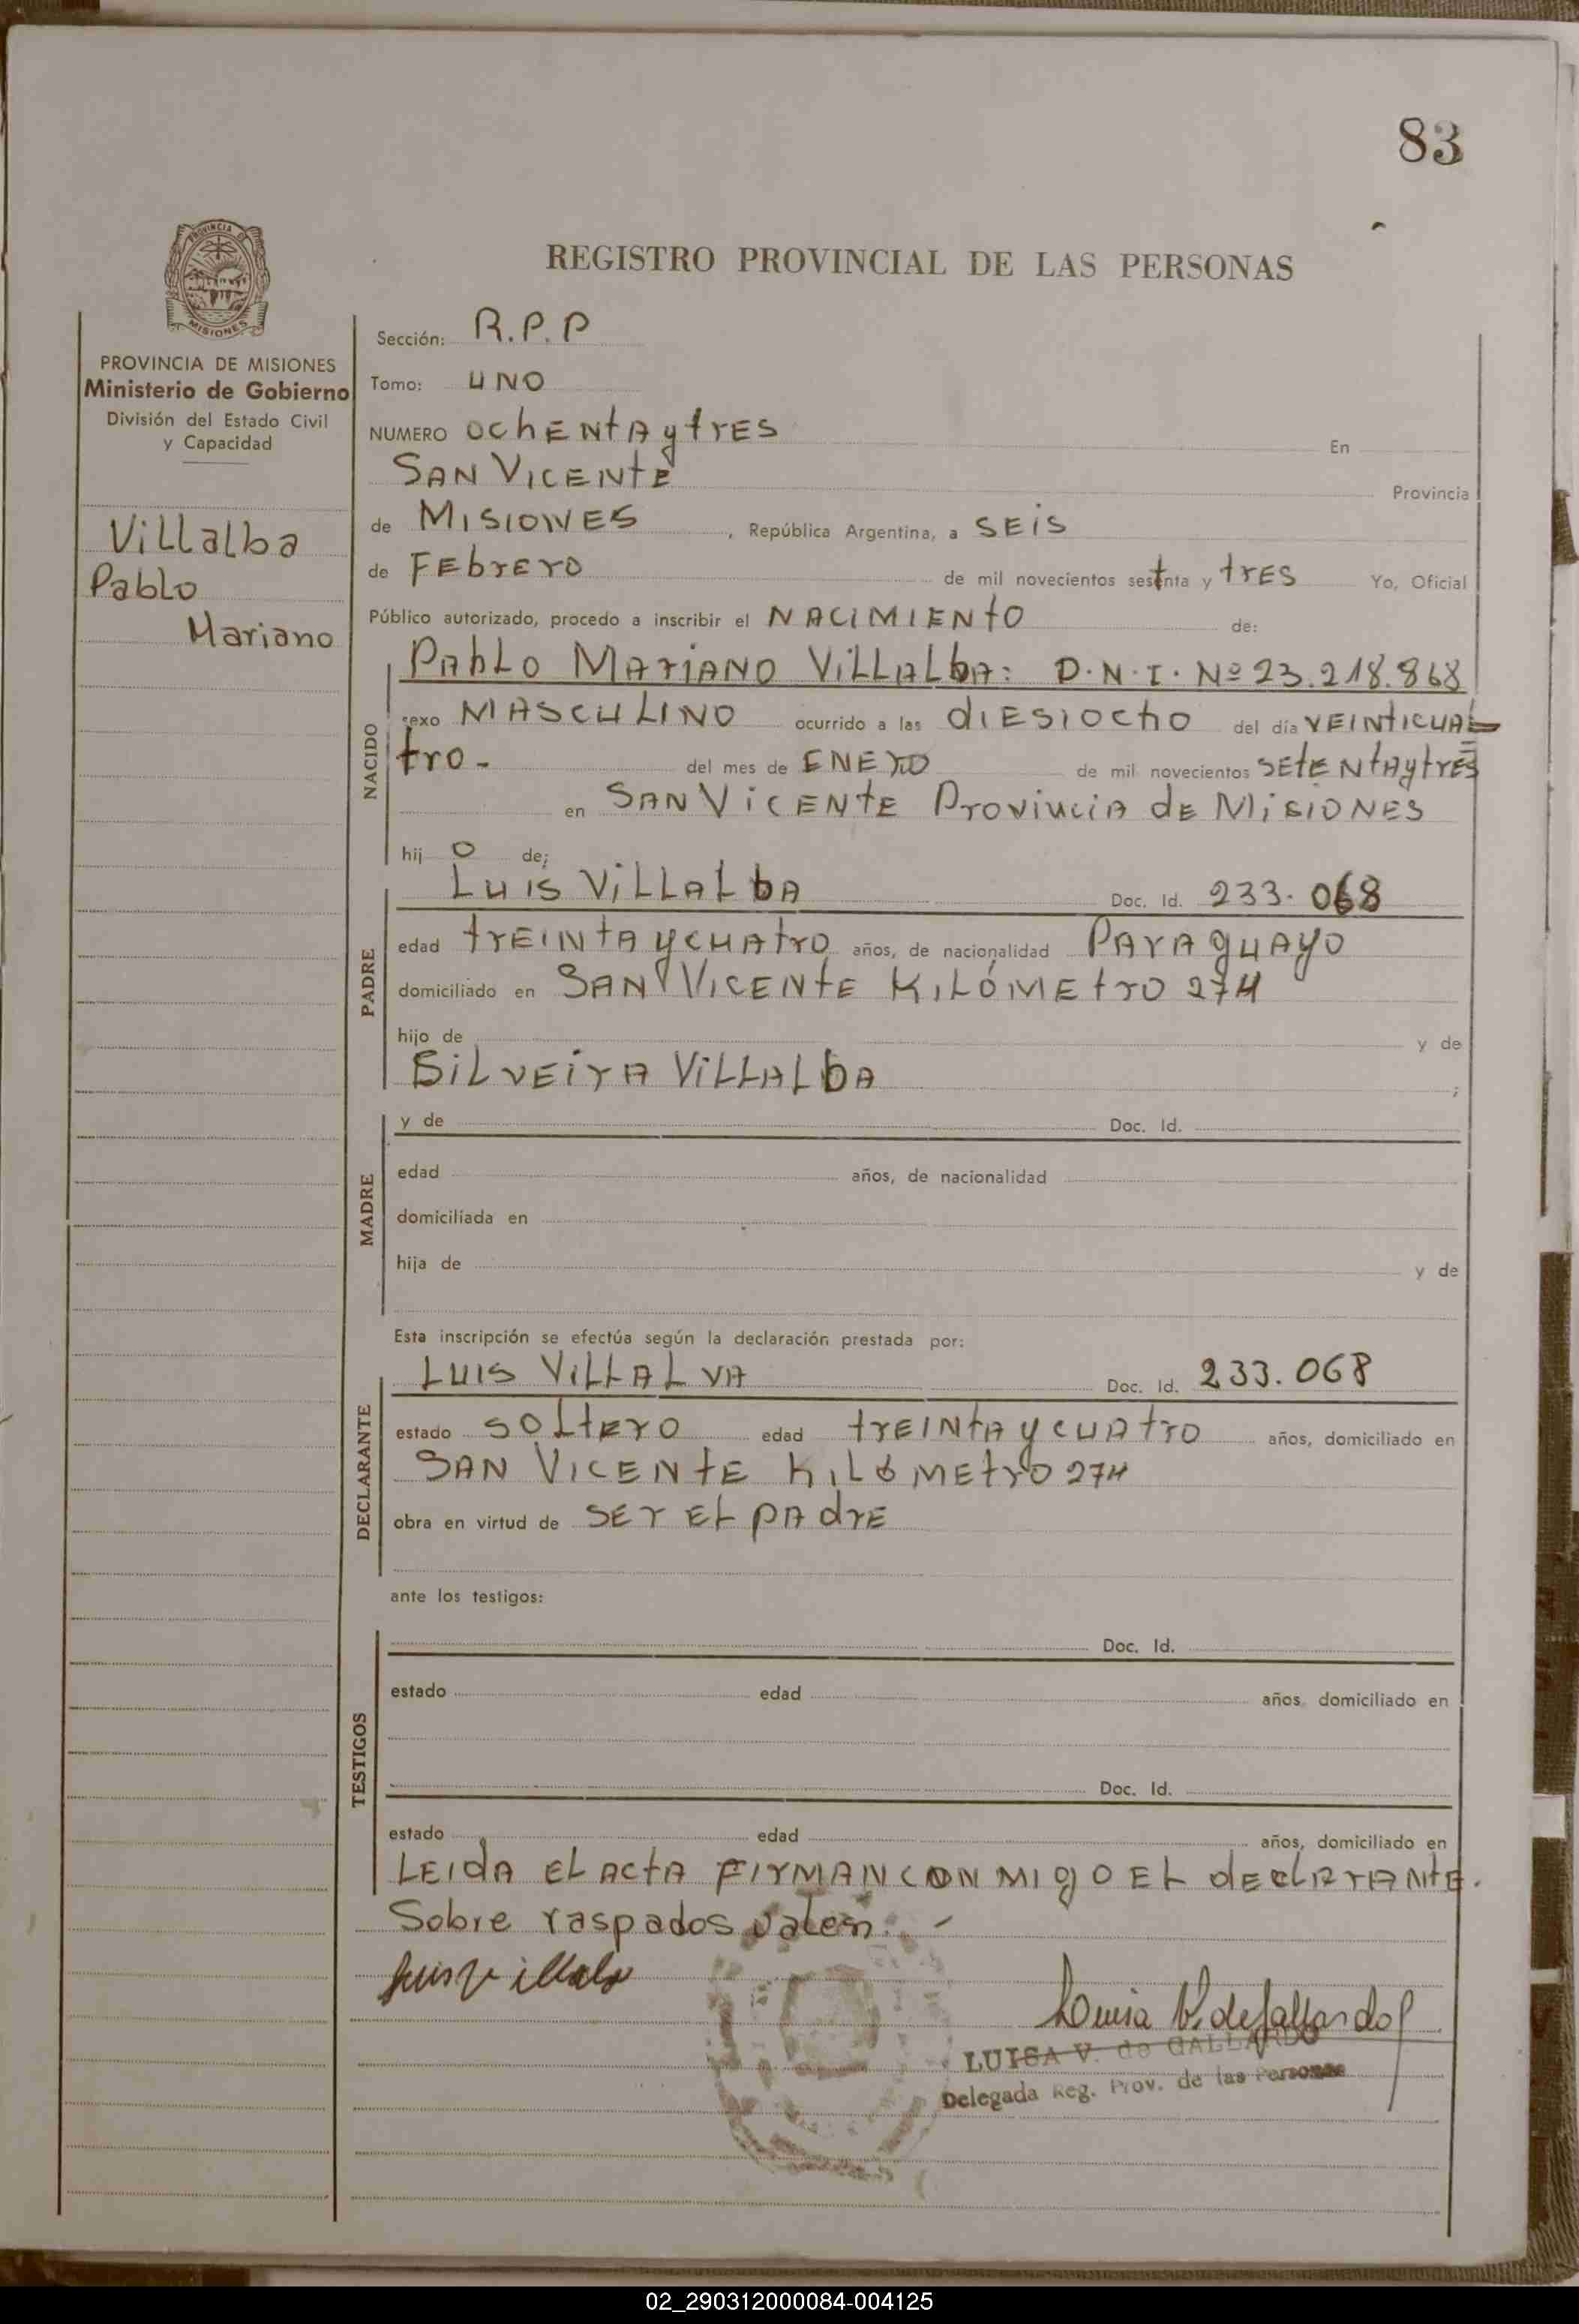 83
PROVINCIA DE
MISIONES
REGISTRO PROVINCIAL DE LAS PERSONAS
PROVINCIA DE MISIONES
Ministerio de Gobierno
División del Estado Civil
y Capacidad
Villalba
Pablo
Mariano
Sección: R.P.P
Tomo: UNO
NUMERO OchENtA y trES En
SAN VICENtE Provincia
de MISIONES, República Argentina, a SEIS
de FEbrEro de mil novecientos setenta y trES Yo, Oficial
Público autorizado, procedo a inscribir el NACIMIENtO de:
NACIDO
PAbLo MAriANO ViLLALbA: D.N.I. Nº 23.218.868
sexo MASCULINO ocurrido a las diESiocho del día VEINtICUA
tro- del mes de ENERO de mil novecientos SEtENtAytrES
en SAN ViCENtE ProvinciA dE MiSIONES
hijo de;
PADRE
LuiS ViLLALbA Doc. Id. 233.068
edad trEINtA yCUAtro años, de nacionalidad PArAguAyo
domiciliado en SAN VICENtE KILÓMEtro 274
hijo de y de
SiLVEirA ViLLALbA ;
MADRE
y de Doc. Id.
edad años, de nacionalidad
domiciliada en
hija de y de
Esta inscripción se efectúa según la declaración prestada por:
DECLARANTE
LUIS ViLLALVA Doc. Id. 233.068
estado SOLtEro edad trEINtA y cuAtro años, domiciliado en
SAN VICENtE KILÓMEtro 274
obra en virtud de SEr EL pAdrE
ante los testigos:
TESTIGOS
Doc. Id.
estado edad años, domiciliado en
Doc. Id.
estado edad años, domiciliado en
LEIdA EL ActA FIrMAN CON MIgO EL dEcLArANtE.
Sobre raspados valen.-
Luis Villalb
Luisa V. de Gallardo
LUISA V. de GALLARDO
Delegada Reg. Prov. de las Personas
02_290312000084-004125